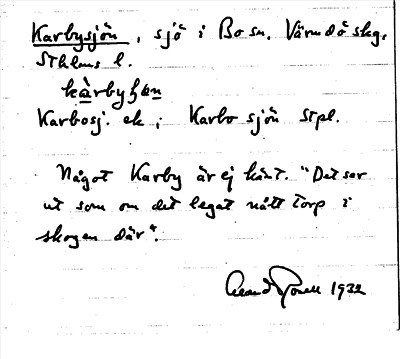 Karbysjön, sjö i Bo sn. Värmdö skg.
Sthlms l.
Karbosj. ek; Karbo sjön Stpl.
Något Karby är ej känt. "Det ser
ut som om det legat nått torp i
skogen där".
1932